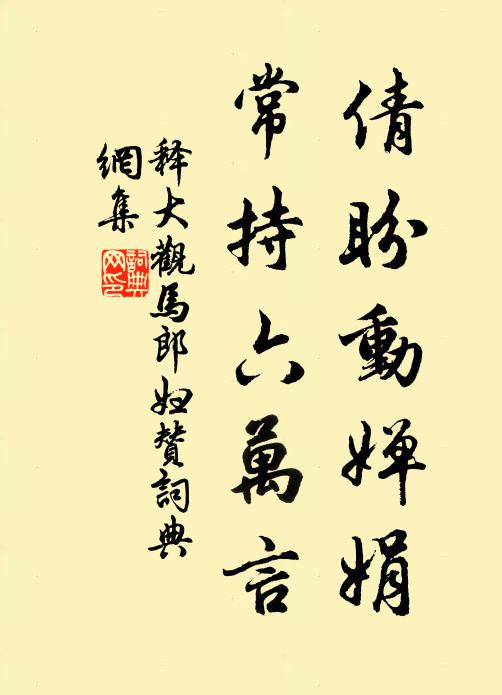 倩盼動婵娟
常持六萬言
释大觀馬郎妇赞詞典
網集
詞典
网印